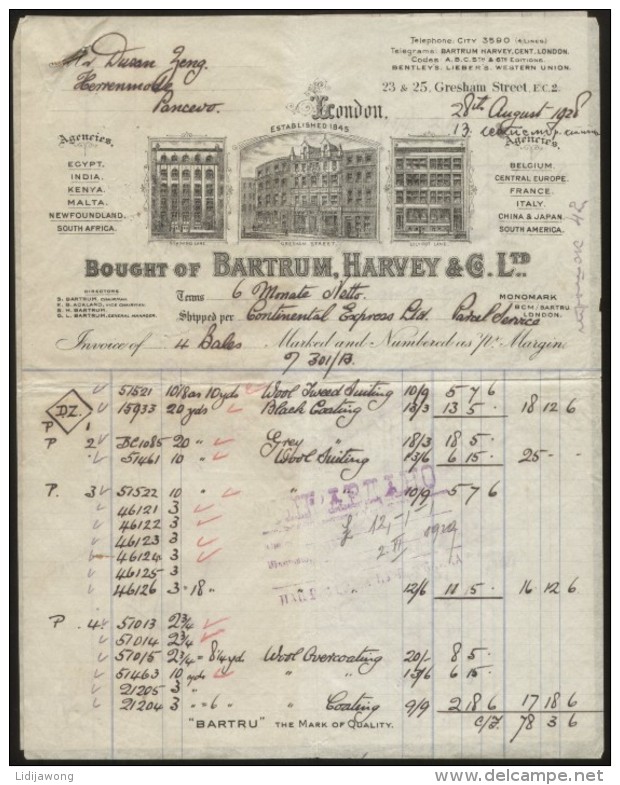 Telephone: CITY 3590 (4 LINES)
Telegrams: BARTRUM HARVEY, CENT. LONDON.
Codes: A.B.C. 5TH & 6TH EDITIONS.
BENTLEY'S, LIEBER'S, WESTERN UNION.
Mr Dusan Zeng.
Herrenmode
Pancevo.
23 & 25, Gresham Street, E.C.2.
London,
28th August 1928
13.
ESTABLISHED 1845
Agencies.
EGYPT.
INDIA.
KENYA.
MALTA.
NEWFOUNDLAND.
SOUTH AFRICA.
Agencies.
BELGIUM.
CENTRAL EUROPE.
FRANCE.
ITALY.
CHINA & JAPAN.
SOUTH AMERICA.
GRESHAM STREET.
BOUGHT OF BARTRUM, HARVEY & CO. LTD
DIRECTORS
S. BARTRUM, CHAIRMAN.
K. B. ACKLAND, VICE CHAIRMAN.
S. H. BARTRUM.
G. L. BARTRUM, GENERAL MANAGER.
Terms 6 Monate Netto.
Shipped per Continental Express Ltd. Parcel Service
MONOMARK
BCM/BARTRU
LONDON.
Invoice of 4 Bales Marked and Numbered as pr. Margin.
301/B.
DZ.
51521 10/8 as 10 yds Wool Tweed Suiting 10/9 5 7 6
P 1 15933 20 yds Black Coating 13/3 13 5 . 18 12 6
P 2 BC1085 20 " Grey " 18/3 18 5 .
51461 10 " Wool Suiting 13/6 6 15 . 25 - -
P. 3 51522 10 " " " 10/9 5 7 6
46121 3
46122 3
46123 3
46124 3
46125 3
46126 3 = 18 " " 12/6 11 5 . 16 12 6
£ 12,-,-
P 4 51013 2¾
51014 2¾
51015 2¾ = 8¼ yd Wool Overcoating 20/- 8 5 .
51463 10 yds " " 13/6 6 15 .
21205 3 "
21204 3 " = 6 " Coating 9/9 2 18 6 17 18 6
C/F. 78 3 6
"BARTRU" THE MARK OF QUALITY.
Lidijawong
delcampe.net